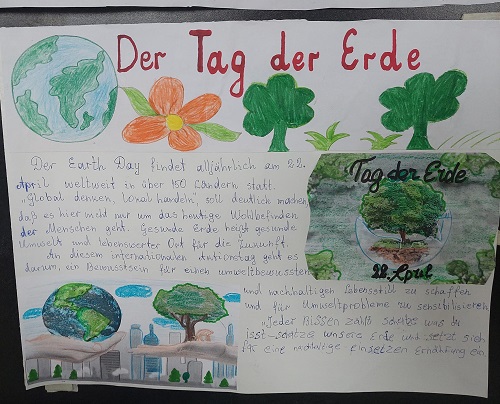 Der Tag der Erde
Der Earth Day findet alljährlich am 22.
April weltweit in über 150 Ländern statt.
"Global denken, lokal handeln", soll deutlich machen,
daß es hier nicht nur um das heutige Wohlbefinden
der Menschen geht. Gesunde Erde heißt gesunde
Umwelt und lebenswerter Ort für die Zukunft.
An diesem internationalen Aktionstag geht es
darum, ein Bewusstsein für einen umweltbewussten
und nachhaltigen Lebensstil zu schaffen
und für Umweltprobleme zu sensibilisieren
"Jeder Bissen zählt schütze was du
isst - schütze unsere Erde und setzt sich
für eine nachhaltige einsetzen Ernährung ein
Tag der Erde
22. April